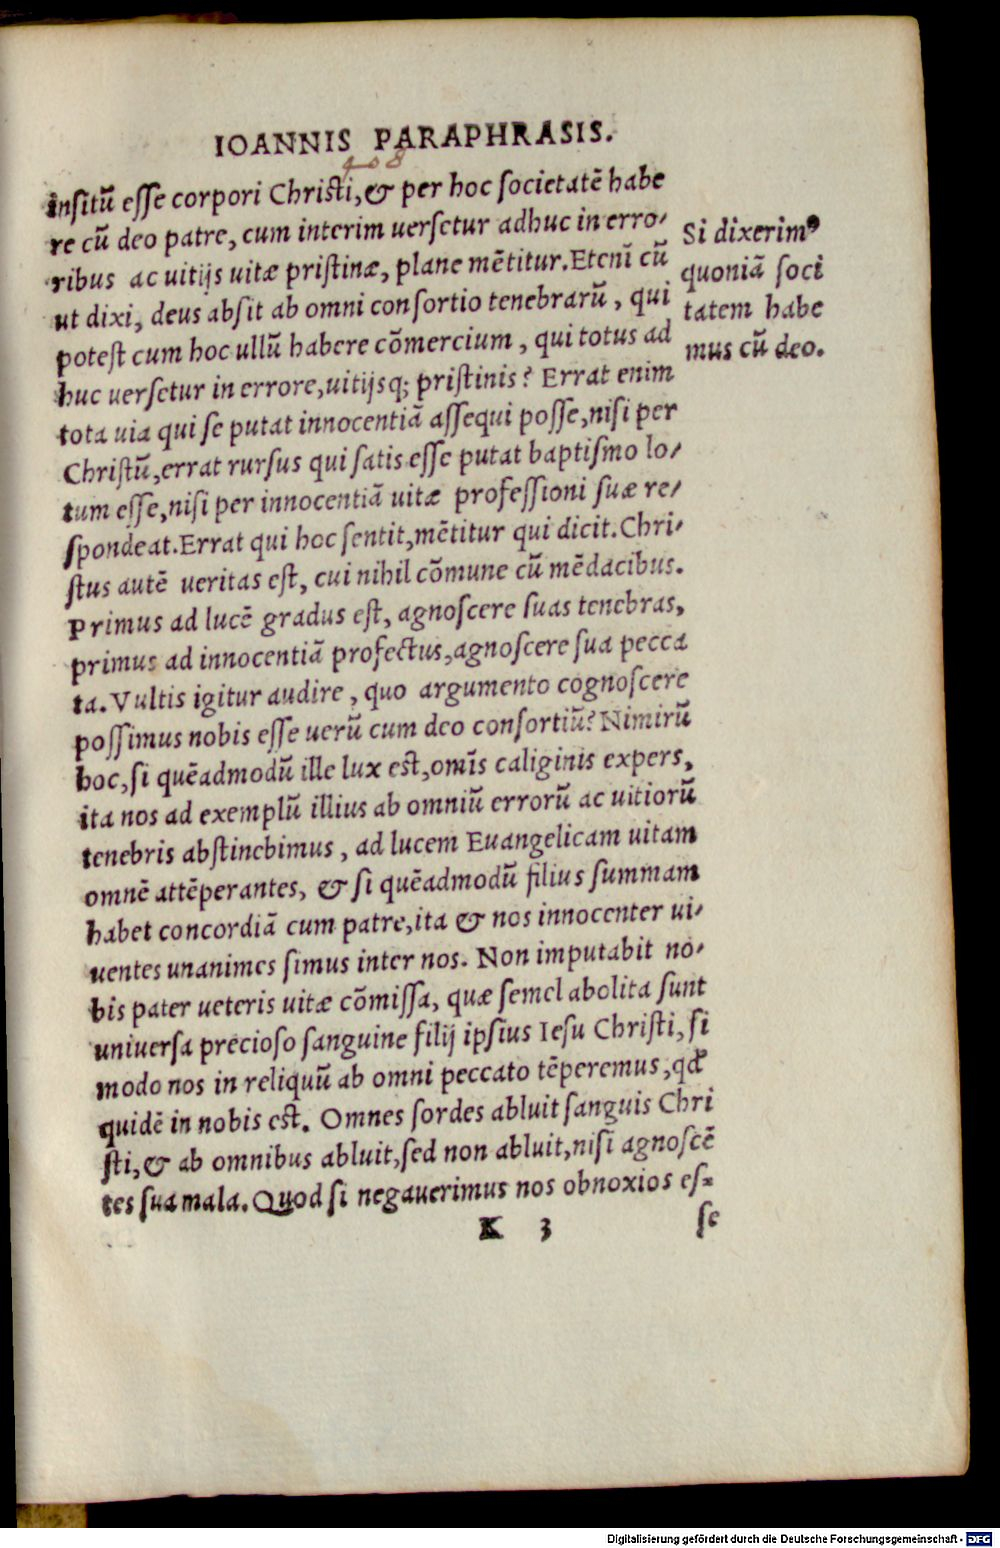 IOANNIS PARAPHRASIS.
408
insitũ esse corpori Christi, & per hoc societatẽ habe
re cũ deo patre, cum interim uersetur adhuc in erro-
ribus ac uitijs uitæ pristinæ, plane mẽtitur. Etenĩ cũ
ut dixi, deus absit ab omni consortio tenebrarũ, qui
potest cum hoc ullũ habere cõmercium, qui totus ad
huc uersetur in errore, uitijsq; pristinis? Errat enim
tota uia qui se putat innocentiã assequi posse, nisi per
Christũ, errat rursus qui satis esse putat baptismo lo-
tum esse, nisi per innocentiã uitæ professioni suæ re-
spondeat. Errat qui hoc sentit, mẽtitur qui dicit. Chri-
stus autẽ ueritas est, cui nihil cõmune cũ mẽdacibus.
Primus ad lucẽ gradus est, agnoscere suas tenebras,
primus ad innocentiã profectus, agnoscere sua pecca
ta. Vultis igitur audire, quo argumento cognoscere
possimus nobis esse uerũ cum deo consortiũ? Nimirũ
hoc, si quẽadmodũ ille lux est, omĩs caliginis expers,
ita nos ad exemplũ illius ab omniũ errorũ ac uitiorũ
tenebris abstinebimus, ad lucem Euangelicam uitam
omnẽ attẽperantes, & si quẽadmodũ filius summam
habet concordiã cum patre, ita & nos innocenter ui-
uentes unanimes simus inter nos. Non imputabit no-
bis pater ueteris uitæ cõmissa, quæ semel abolita sunt
uniuersa precioso sanguine filij ipsius Iesu Christi, si
modo nos in reliquũ ab omni peccato tẽperemus, qđ
quidẽ in nobis est. Omnes sordes abluit sanguis Chri
sti, & ab omnibus abluit, sed non abluit, nisi agnoscẽ
tes sua mala. Quod si negauerimus nos obnoxios es=
K 3 se
Si dixerimꝰ
quoniã soci
tatem habe
mus cũ deo.
Digitalisierung gefördert durch die Deutsche Forschungsgemeinschaft - DFG